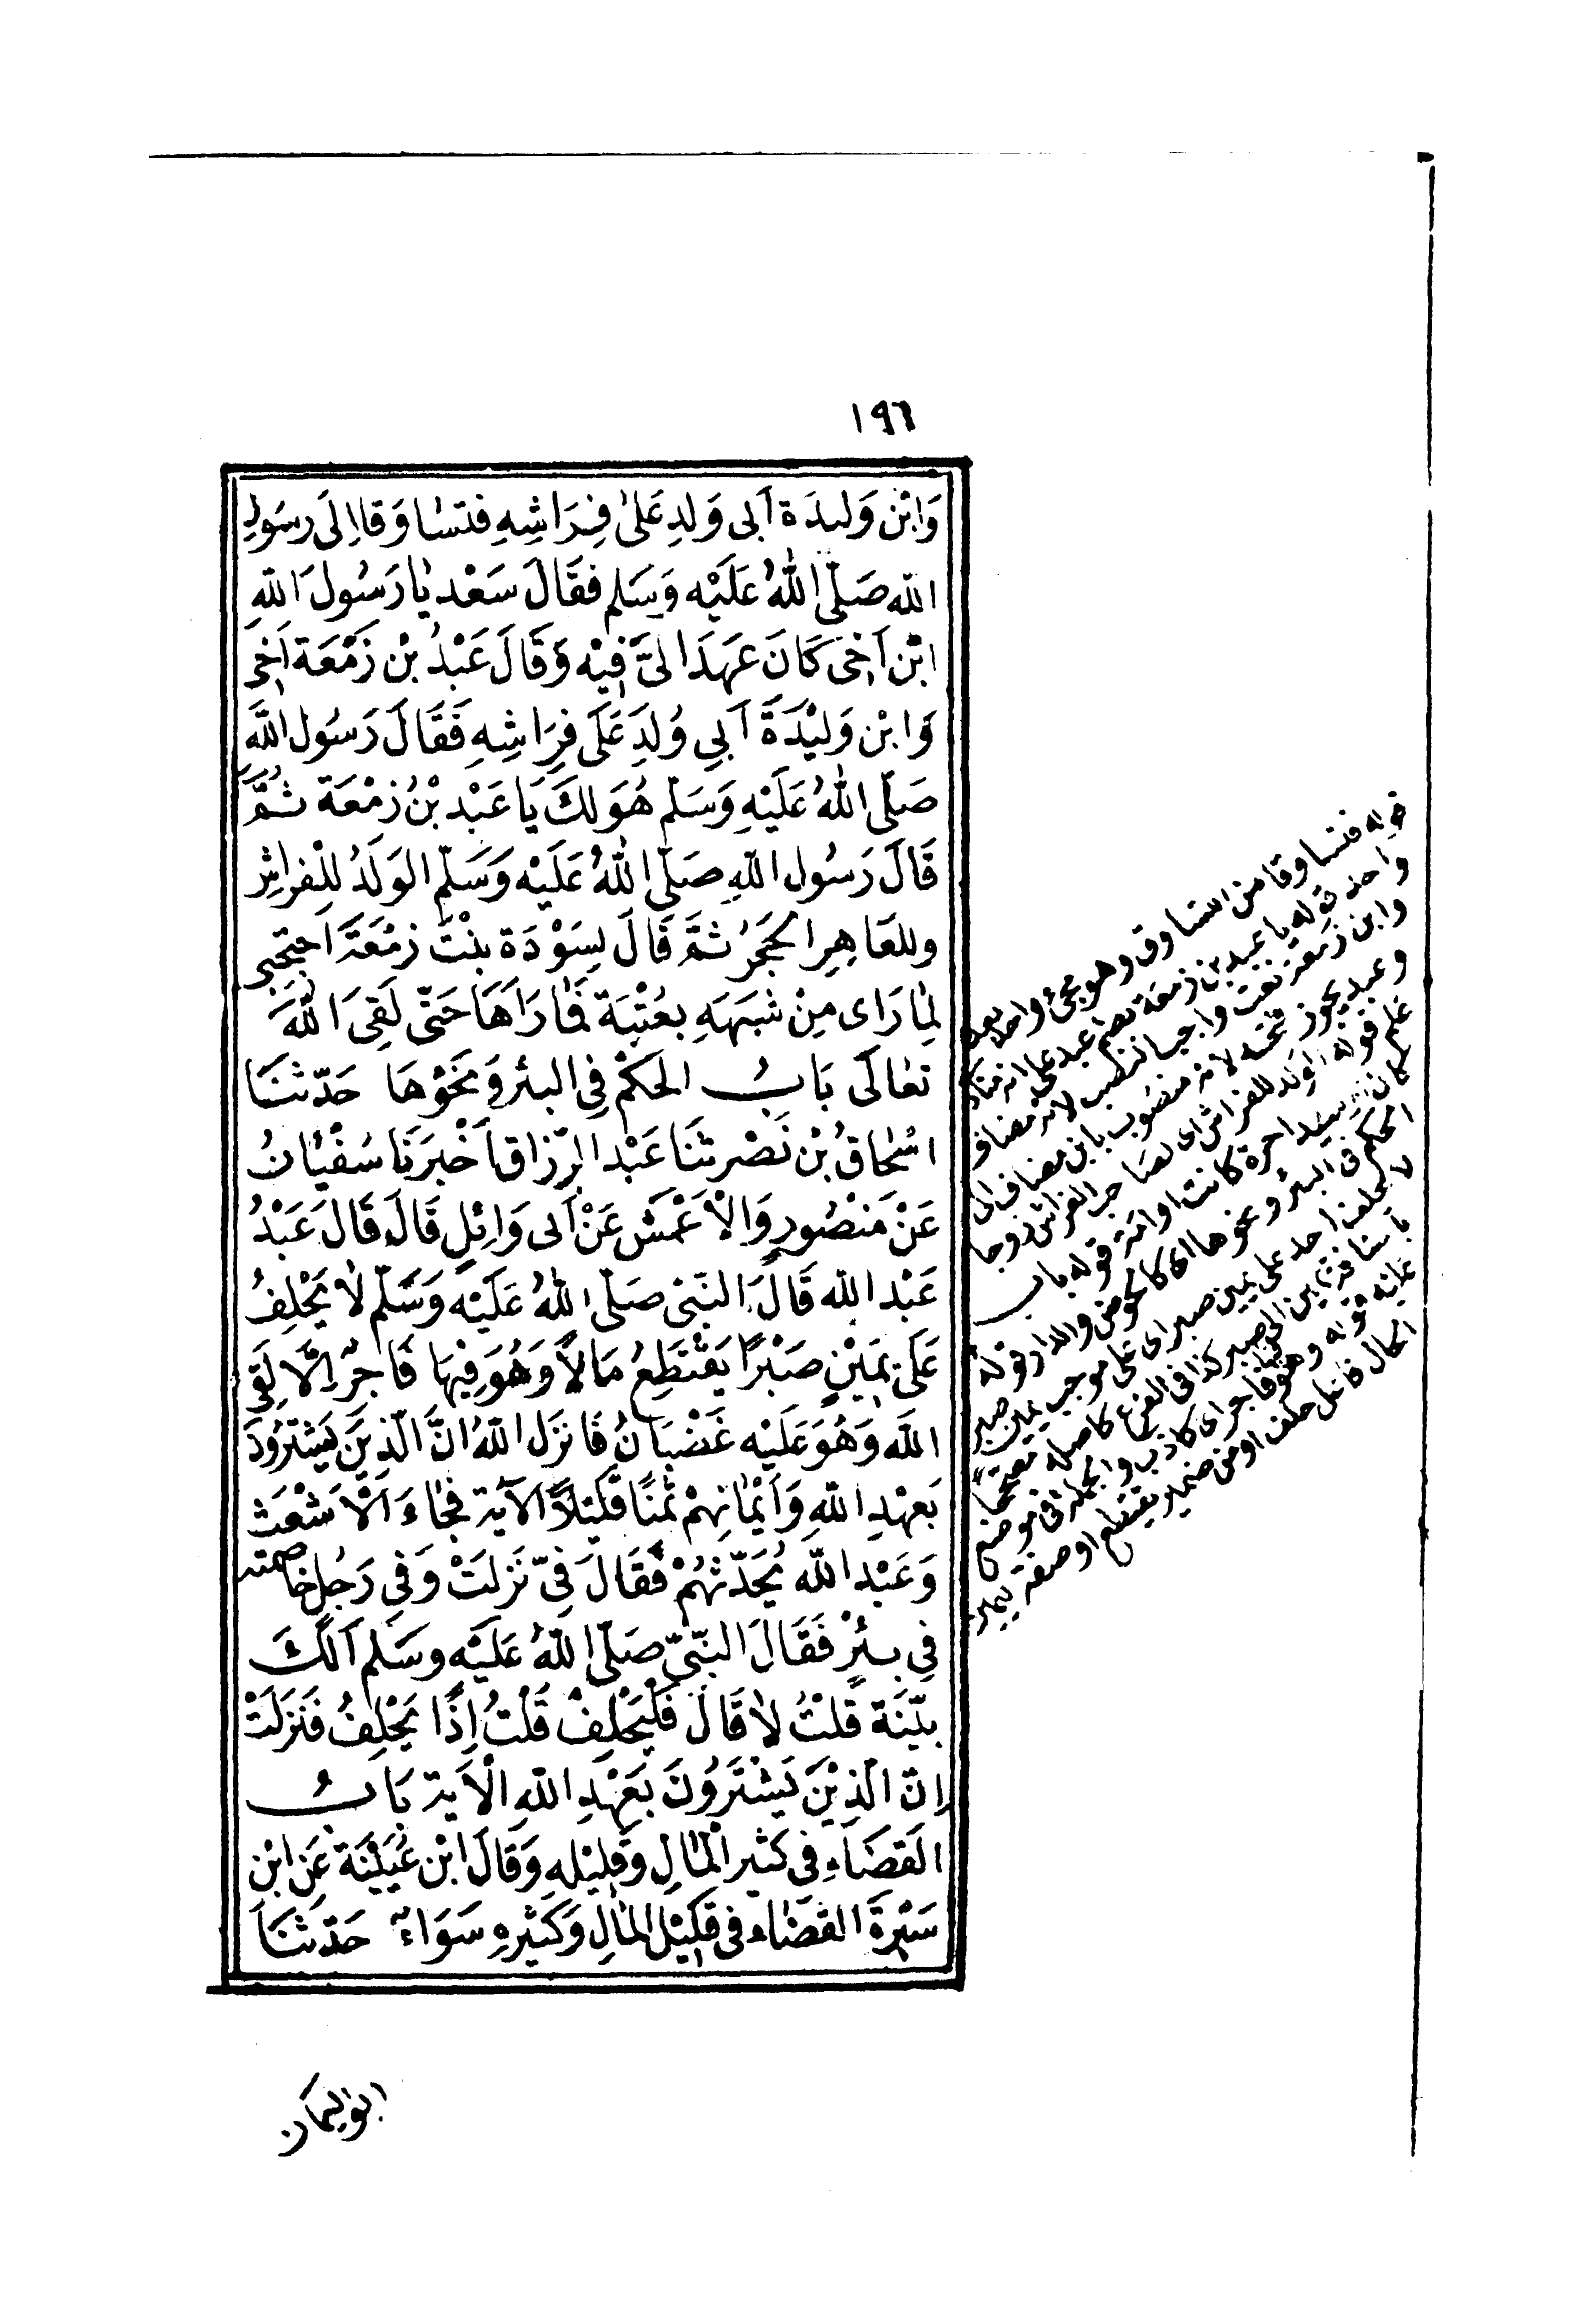 ١٩٦
وَابْن وَليدَة اَبى وَلدِ عَلىٰ فِرَاشِهِ فتسٰاوَقا اِلَى رسَولِ
الله صَلّى اللهُ عَلَيْه وَسَلم فقَالَ سَعْد يٰا رَسُولَ اللهِ
ابْن اَخى كَانَ عَهَدَ الىَّ فِيْه وَقَالَ عَبْدُ بْن زَمْعَة اَخى
وَابْن وَليْدَةَ اَبِي وُلِدَ عَلَى فِرَاشِهِ فَقَالَ رَسُول اللهِ
صَلّى اللهُ عَلَيْهِ وَسَلّم هُوَ لكَ يَا عَبْد بْنُ زمْعَة ثُمَّ
قَالَ رَسُول اللهِ صَلّى اللهُ عَلَيْه وَسَلّم الوَلَدُ لِلْفراشِ
وللعَاهِرِ الحَجَرُ ثمَّ قَالَ لِسَوْدَة بنْت زمْعَةَ احتجبى
لِمٰا رَاى مِنْ شبَهَهِ بعُتْبَة فَمٰا رَاَهَا حَتّى لَقِىَ اللهَ
تعٰالَى بَابُ الحَكمْ فِي البئر وَنحَوْهَا حَدّثنَا
اسْحٰاقُ بْن نَصْر ثنَا عَبْد الرّزاق اَخْبَرَنَا سُفْيٰانُ
عَنْ مَنْصُورٍ وَالْاَعْمَش عَنْ اَبى وَائِلٍ قَالَ قَالَ عَبْدُ
عَبْد الله قَالَ النّبّى صَلّى اللهُ عَلَيْه وَسَلّم لاٰ يَحْلِفُ
عَلَى يَمَيْنٍ صَبْرًا يَقْتَطِعُ مَالاً وَهُوَ فِيهَا فَاجرٌ اِلّا لَقِىَ
اللهَ وَهُوَ عَلَيْه غَضْبَانُ فَانزَل اللهُ انَّ الّذِيَن يَشْترُونَ
بَعهْدِ اللهِ وَاَيْمٰانِهمْ ثمَنًا قَليَلاً الآيَة فجٰاءَ الْاَشعَث
وَعَبْد الله يُحَدّثهُمْ فَقَالَ فِىّ نَزلتْ وَفى رَجُل خاصمته
فِي بئرٍ فَقَالَ النّبّىّ صَلّى اللهُ عَلَيْه وسَلم اَلكَ
بيّنَة قلتُ لاٰ قَالَ فَليَحْلِفْ قَلتُ اِذًا يَحْلِفُ فَنَزَلَتْ
اِنّ الّذِيْنَ يَشْتَرُونَ بَعَهْدِ اللهِ الْاَية بَابُ
القضَاءِ فى كثير الْمٰالِ وَقليْلهِ وَقَالَ ابْن عُيَيْنَة عَن ابْن
سَبْرةَ القضَاء فى قَليْل المٰالِ وَكَثيرِه سَوَاءٌ حَدّثنَا
قوله فتساوقا من التساوق وهو مجئ واحد بعد
واحد قوله يا عبد بن زمعة بضم عبد على انه مناد
وابن زمعة نعت واجب النصب لانه مضاف
وعبد يجوز فتحه لانه منصوب بابن مضاف الى
علم قوله الولد للفراش اى لصاحب الفراش زوجا
كان سيدا حرة كانت او امة قوله باب
الحكم فى البئر ونحوها اى كالحوض والدار قوله
لا يحلف احد على يمين صبر اى على موجب يمين صبر
كذا فى الفرع كاصله مصححا
عليه قوله وهو فيها فاجر اى كاذب والجملة فى موضع
الحال فاعل حلف او من ضمير يقتطع او صفة ليمين
ابو اليمان